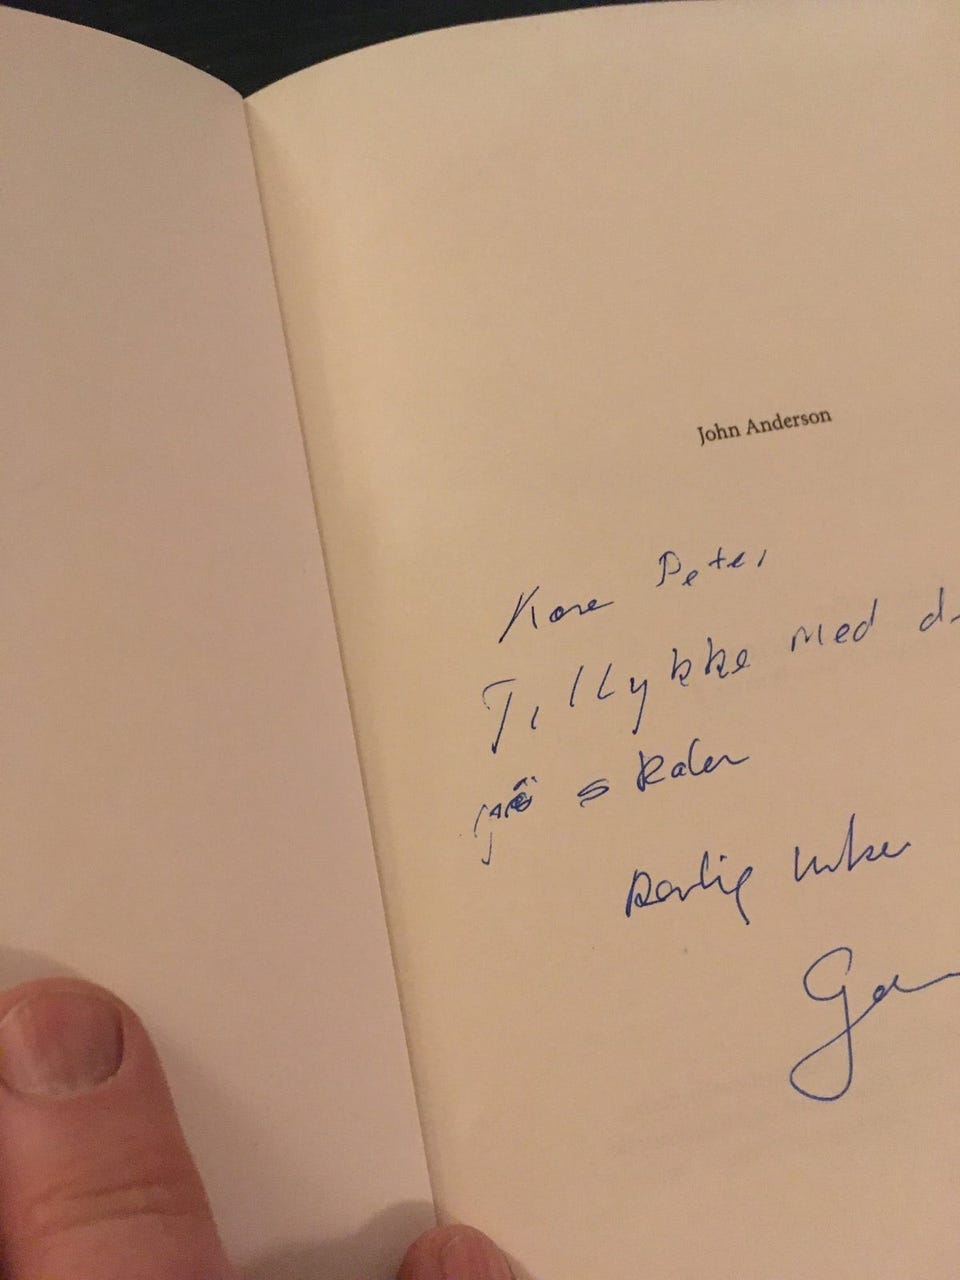 John Anderson
Kære Peter
Tillykke med d
på skalen
Kærlig hilsen